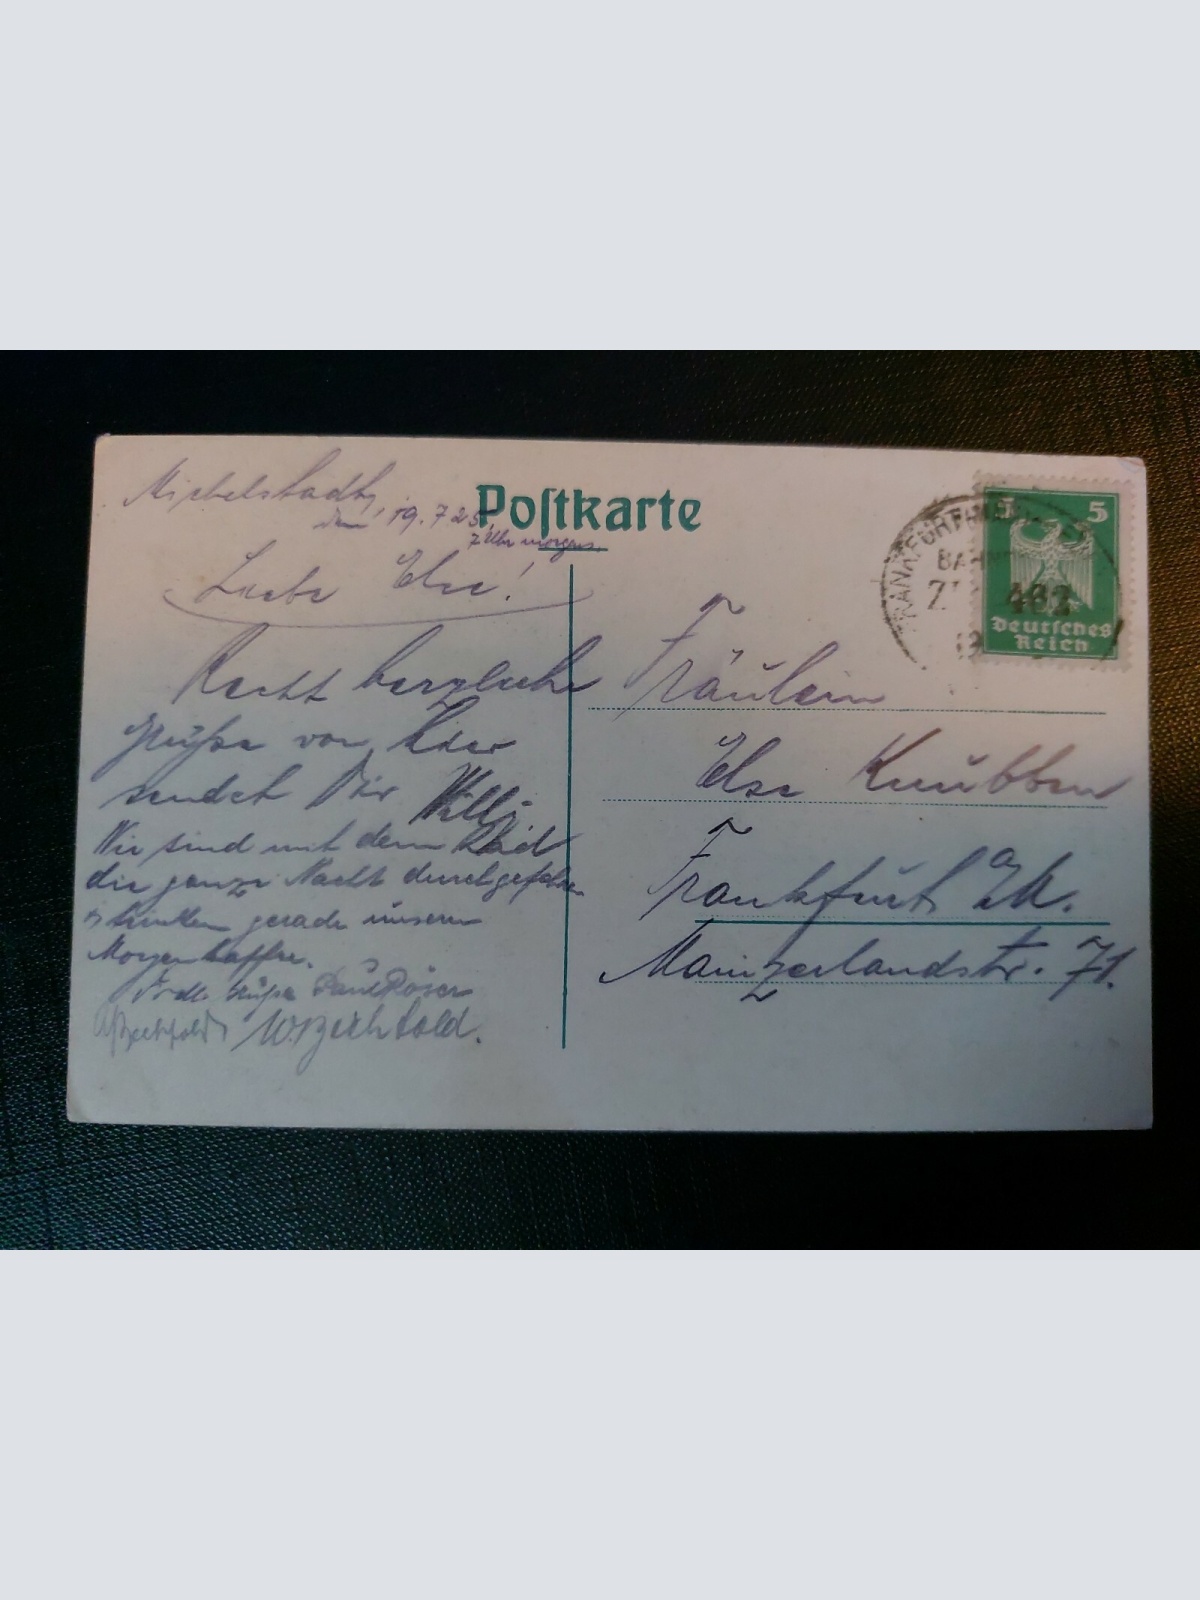 Michelstadt,
den 19. 7 25,
7 Uhr morgens.
Postkarte
Liebe Else!
Recht herzliche
Grüße von hier
sendet Dir Willi
Wir sind mit dem Rad
die ganze Nacht durchgefahren
trinken gerade unseren
Morgenkaffee.
Grüße Paul Röser
W. Bechtold.
Fräulein
Else Knubben
Frankfurt a/M.
Mainzerlandstr. 71.
FRANKFURT
BAHN
ZUG 482
5 5
Deutsches
Reich